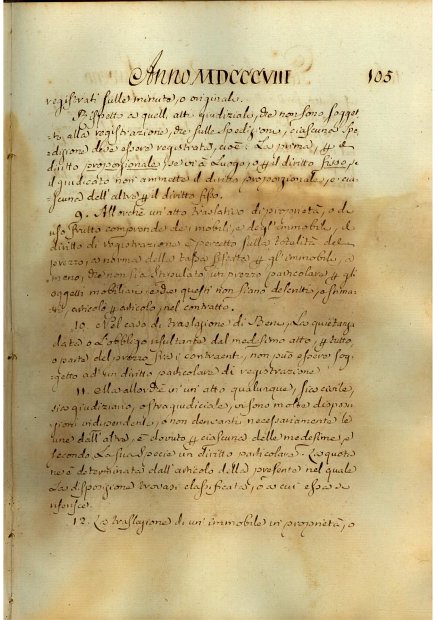 Anno MDCCCVIII 105
registrati sulle minute, o originale.
Rispetto a quelli atti giudiziali, che non sono sogget
ti, alla registrazione, che sulle spedizione, ciascuna spe
dizione deve essere registrata, cioè: La prima, # il
diritto proporzionale, se vi è Luogo, o # il diritto fisso, se
il giudicato non ammette il diritto proporzionale, e cia
scuna dell'altre # il diritto fisso.
9. Allorchè un'atto traslativo di proprietà, o de
usofrutto comprende de' mobili, e degl'immobili, il
diritto di registrazione è percetto sulla totalità del
prezzo, a norma della tassa fissata # gl'immobili, a
meno, che non sia stipulato un prezzo particolare # gli
oggetti mobiliari, e che questi non siano descritti, e stima
ti, articolo # articolo, nel contratto.
10. Nel caso di traslazione di Beni, La quietanza
data o L'obbligo risultante dal medesimo atto, # tutto,
o parte del prezzo fra i contraenti, non può essere sog
getto ad'un diritto particolare di registrazione.
11. Ma allorchè in un'atto qualunque, sia civile,
sia giudiziario, o stragiudiciale, vi sono molte disposi
zioni indipendenti, o non derivanti necessariamente le
une dall'altre, è dovuto # ciascuna delle medesime, e
secondo La sua specie un diritto particolare. La quota
ne è determinata dall'articolo della presente nel quale
La disposizione trovasi classificata, o a cui essa se
riferisce.
12. La traslazione di un'immobile in proprietà, o